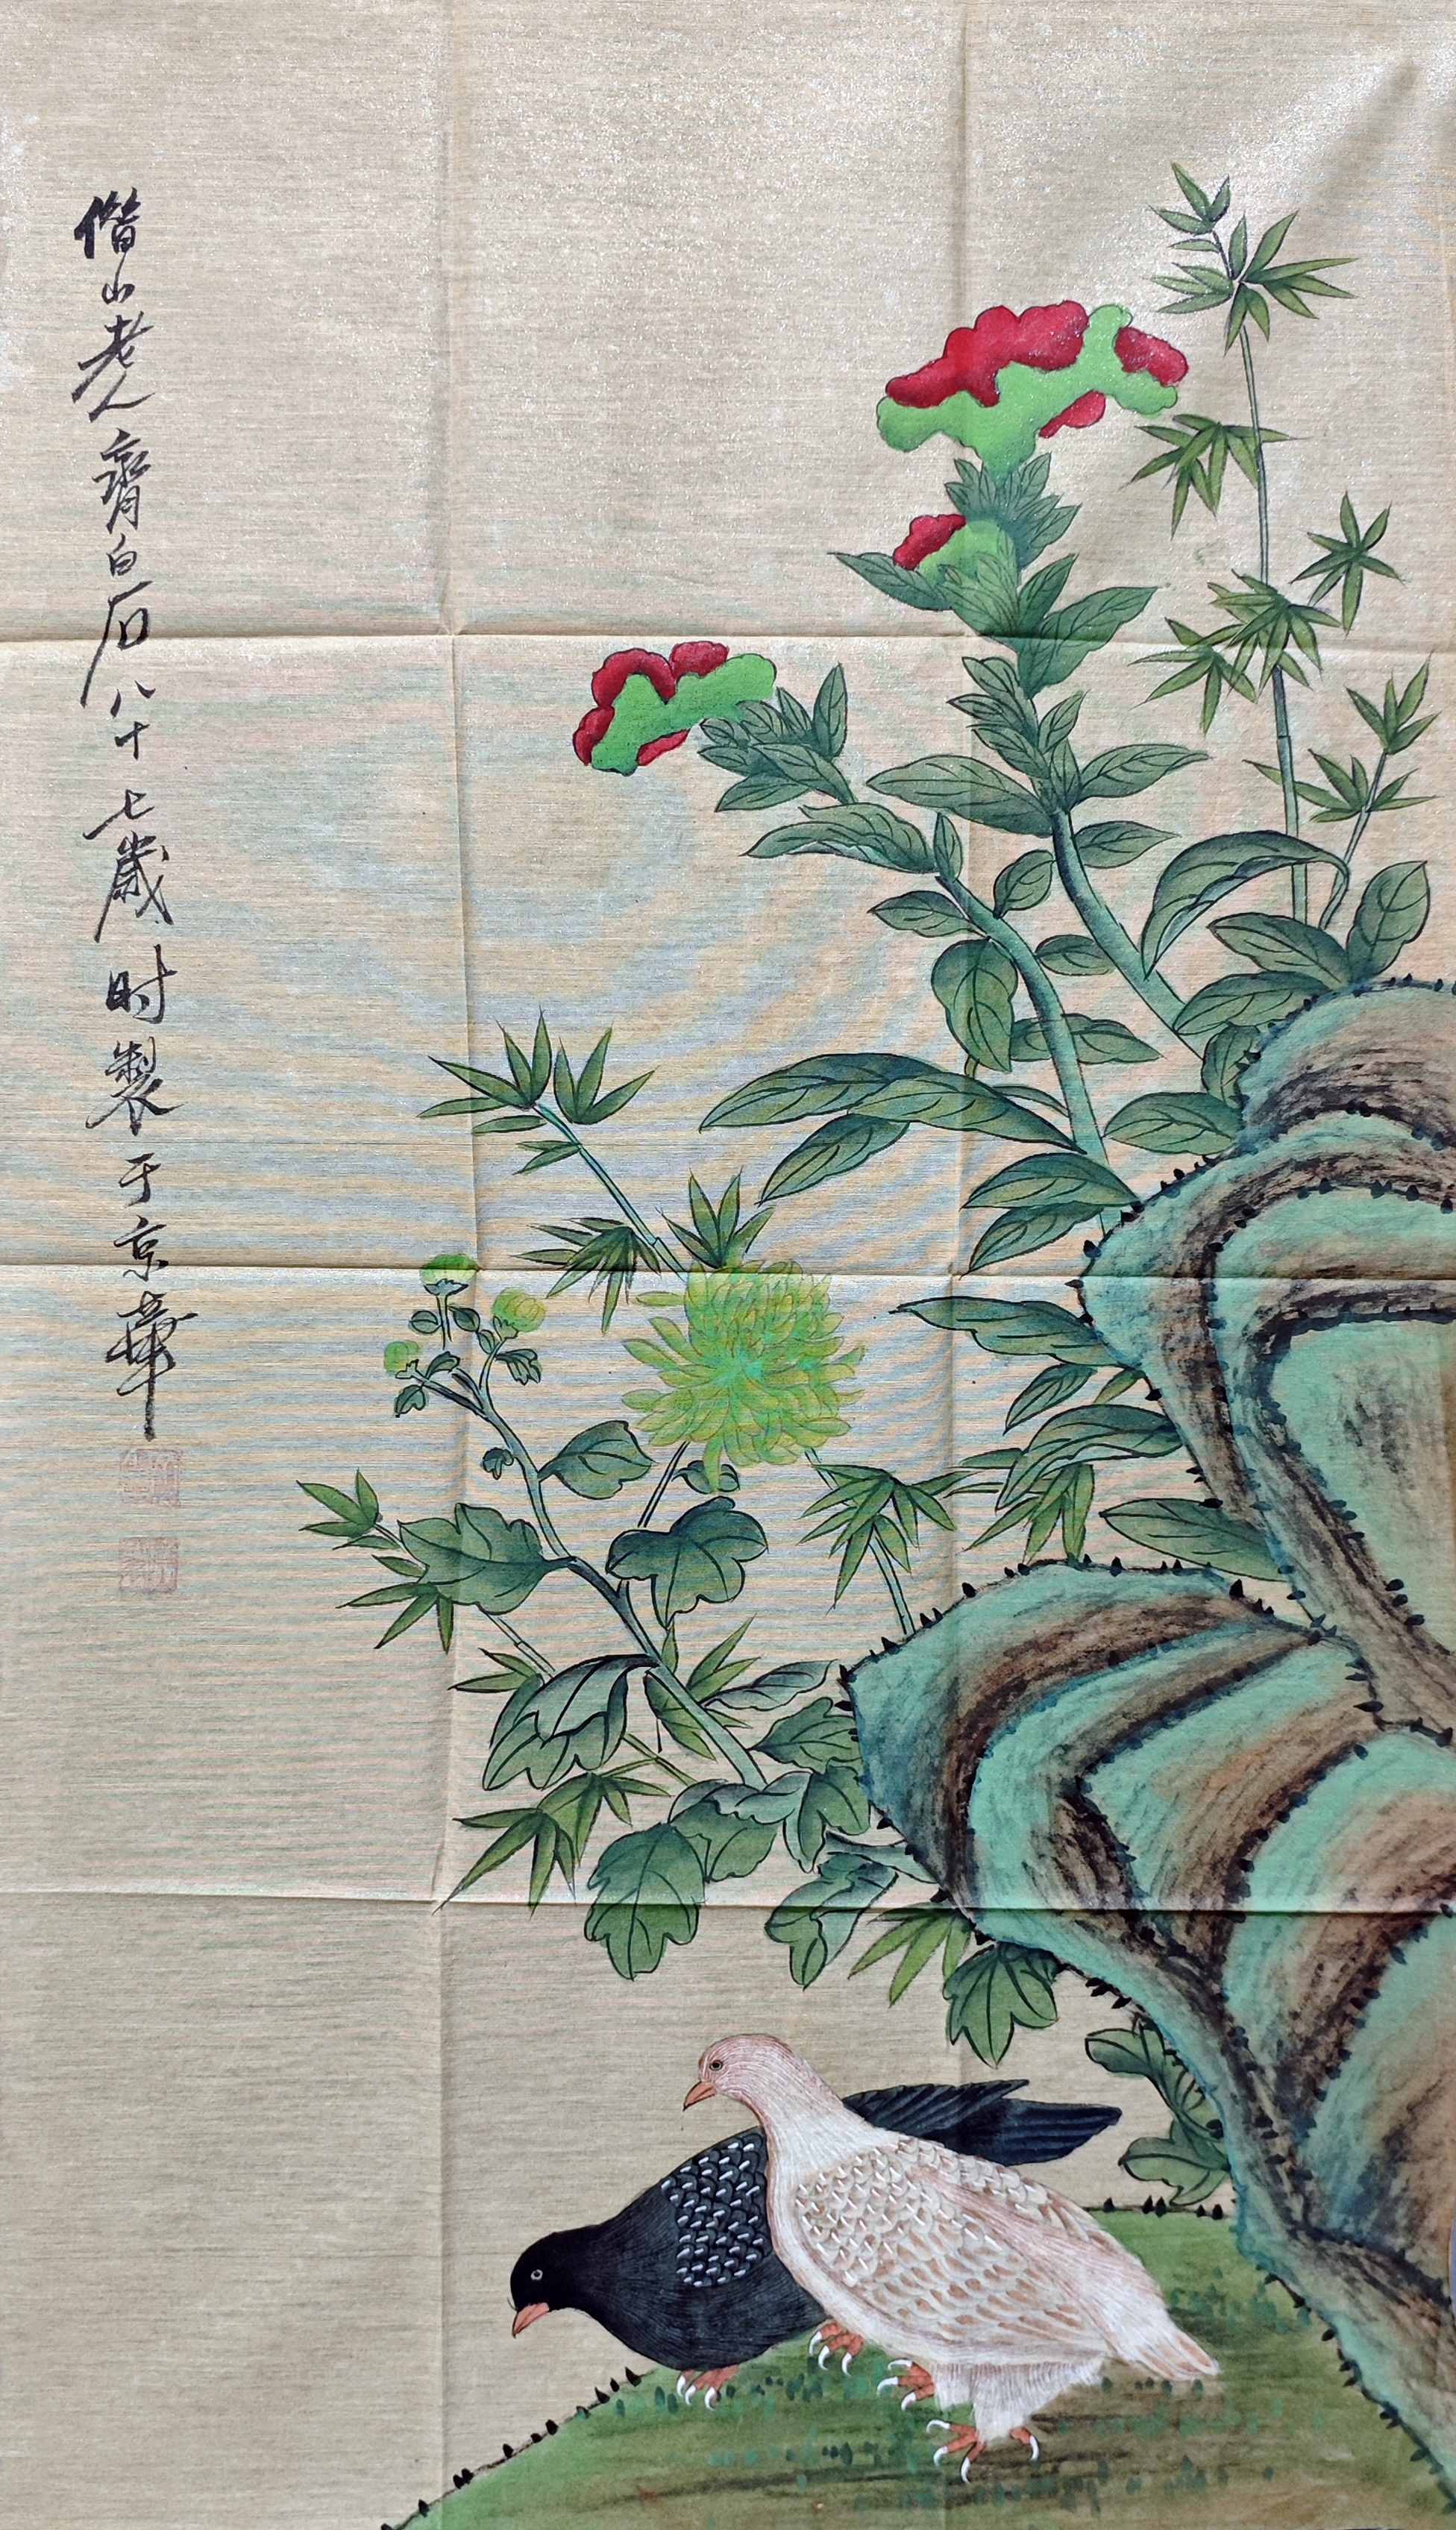 偕山老人齊白石八十七歲时製于京華